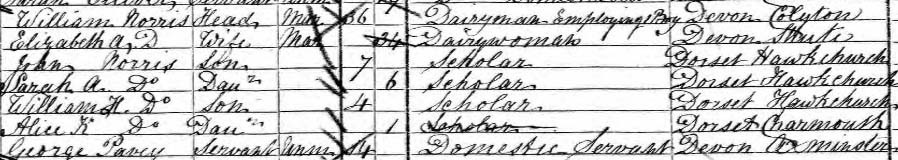 William Norris Head Mar 36 Dairyman Employing 1 Boy Devon Colyton
Elizabeth A. Do Wife Mar 34 Dairywoman Devon Shute
John Norris Son 7 Scholar Dorset Hawkchurch
Sarah A. Do Daur 6 Scholar Dorset Hawkchurch
William H. Do Son 4 Scholar Dorset Hawkchurch
Alice K Do Daur 1 Scholar Dorset Charmouth
George Pavey Servant Unm 14 Domestic Servant Devon Axminster